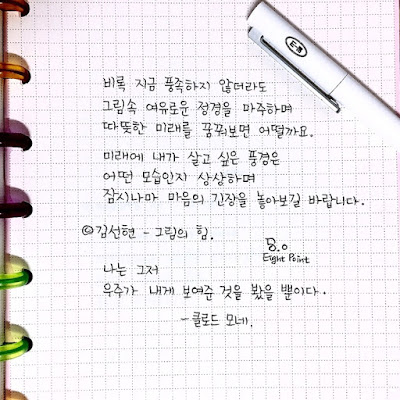 비록 지금 풍족하지 않더라도
그림속 여유로운 정경을 마주하며
따뜻한 미래를 꿈꿔보면 어떨까요.
미래에 내가 살고 싶은 풍경은
어떤 모습인지 상상하며
잠시나마 마음의 긴장을 놓아보길 바랍니다.
©김선현 - 그림의 힘.
8.0
Eight Point
나는 그저
우주가 내게 보여준 것을 봤을 뿐이다.
- 클로드 모네.